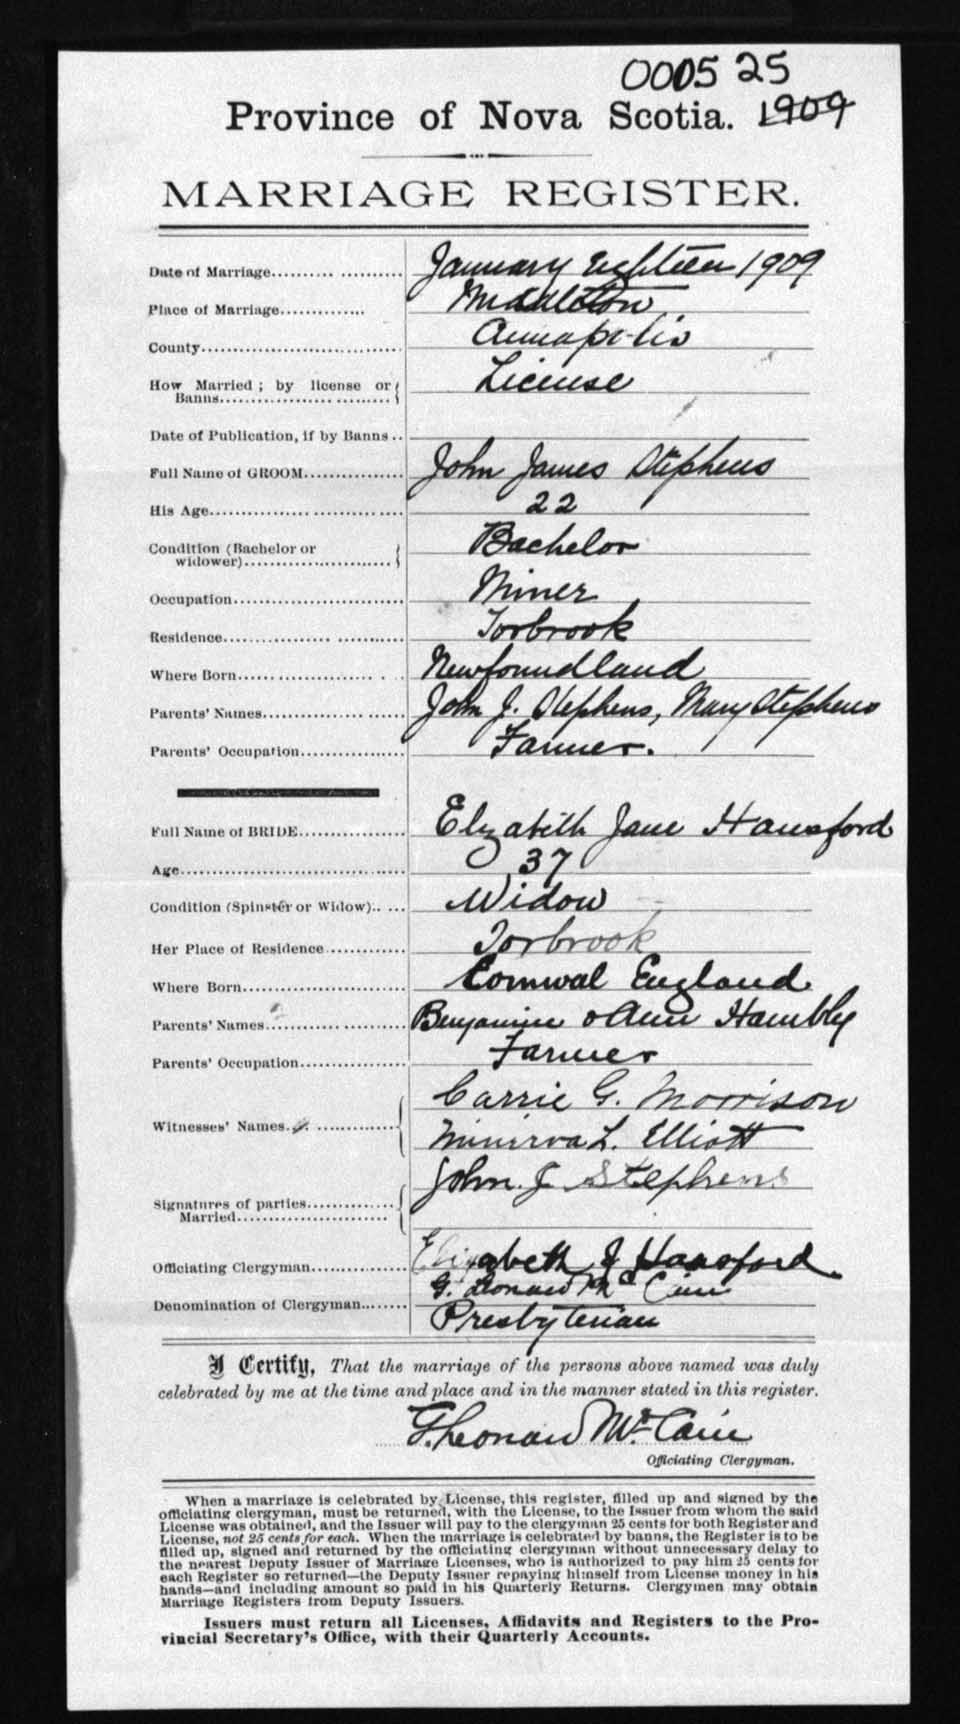 000525
Province of Nova Scotia. 1909
MARRIAGE REGISTER.
Date of Marriage.......... ........... January eighteen 1909
Place of Marriage.............. Middleton
County................................... Annapolis
How Married; by license or
Banns............................... License
Date of Publication, if by Banns..
Full Name of GROOM................. John James Stephens
His Age.................................. 22
Condition (Bachelor or
widower)........................... Bachelor
Occupation.............................. Miner
Residence................................ Torbrook
Where Born............................. Newfoundland
Parents' Names........................ John J. Stephens, Mary Stephens
Parents' Occupation.................. Farmer.
Full Name of BRIDE................. Elizabeth Jane Hansford
Age......................................... 37
Condition (Spinster or Widow)..... Widow
Her Place of Residence............. Torbrook
Where Born............................. Cornwal England.
Parents' Names........................ Benjamine & Ann Hambly
Parents' Occupation.................. Farmer
Carrie G. Morrison
Witnesses' Names.....................
Minerva L. Elliott
John J Stephens
Signatures of parties.................
Married...........................
Elizabeth J Hansford.
Officiating Clergyman...............
G. Leonard McCain
Denomination of Clergyman....... Presbyterian
I Certify, That the marriage of the persons above named was duly
celebrated by me at the time and place and in the manner stated in this register.
G. Leonard McCain
Officiating Clergyman.
When a marriage is celebrated by License, this register, filled up and signed by the
officiating clergyman, must be returned, with the License, to the Issuer from whom the said
License was obtained, and the Issuer will pay to the clergyman 25 cents for both Register and
License, not 25 cents for each. When the marriage is celebrated by banns, the Register is to be
filled up, signed and returned by the officiating clergyman without unnecessary delay to
the nearest Deputy Issuer of Marriage Licenses, who is authorized to pay him 25 cents for
each Register so returned—the Deputy Issuer repaying himself from License money in his
hands—and including amount so paid in his Quarterly Returns. Clergymen may obtain
Marriage Registers from Deputy Issuers.
Issuers must return all Licenses, Affidavits and Registers to the Pro-
vincial Secretary's Office, with their Quarterly Accounts.